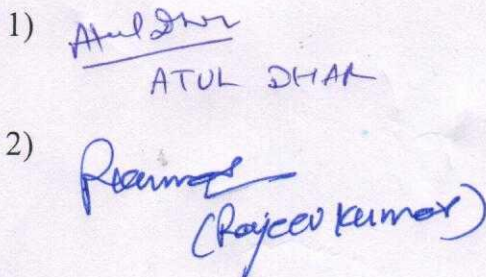 1) Atul Dhar
ATUL DHAR
2)
(Rajeev Kumar)